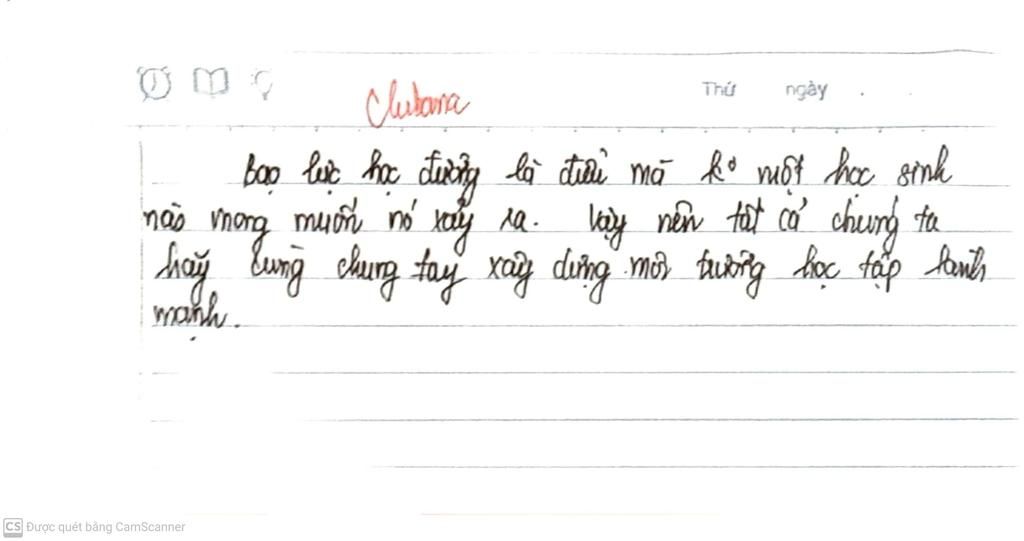 Thứ ngày . .
Clubana
Bạo lực học đường là điều mà ko một học sinh
nào mong muốn nó xảy ra. Vậy nên tất cả chúng ta
hãy cùng chung tay xây dựng môi trường học tập lành
mạnh.
CS Được quét bằng CamScanner